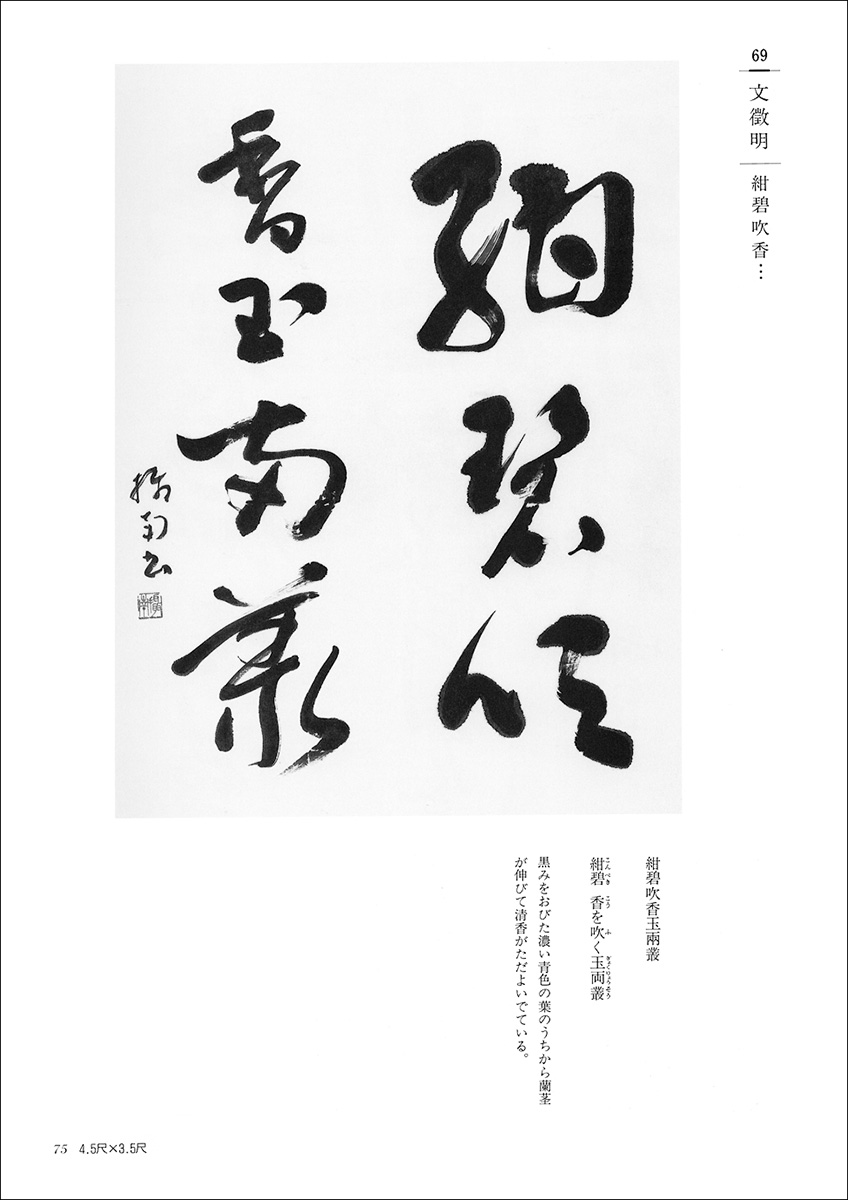 69
文徵明
紺碧吹香…
紺碧吹
香玉兩叢
紺碧吹香玉兩叢
紺碧こんぺき 香こうを吹ふく玉両叢ぎょくりょうそう
黒みをおびた濃い青色の葉のうちから蘭茎
が伸びて清香がただよいでている。
75 4.5尺×3.5尺